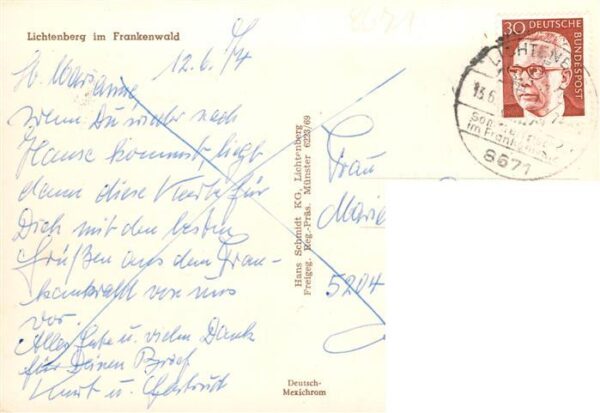 Lichtenberg im Frankenwald
8671
12.6.74
Wenn Du wieder nach
Hause kommst liegt
dann diese Karte für
Dich mit den besten
Grüßen aus dem Fran-
kenwald von uns
vor.
Alles Gute u. vielen Dank
für Deinen Brief
Kurt u. Gertrud
Hans Schmidt KG. Lichtenberg
Freigeg. Reg.-Präs. Münster 6223/69
Deutsch-
Mexichrom
30 DEUTSCHE
BUNDESPOST
LICHTENB
13.6
im Franken
8671
Frau
Marie
5204